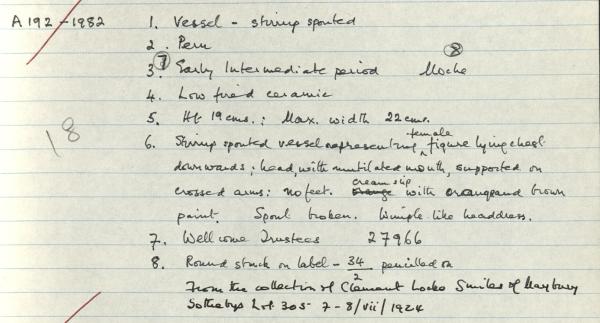 A 192 - 1982 1. Vessel - stirrup spouted
2. Peru
3. (7) Early Intermediate period (8) Moche
4. Low fired ceramic
5. Ht 19 cms.; Max. width 22 cms.
18
6. Stirrup spouted vessel representing female figure lying chest
downwards; head, with mutilated mouth, supported on
crossed arms: no feet. orange cream slip with orange and brown
paint. Spout broken. Wimple like headdress.
7. Wellcome Trustees 27966
8. Round stuck on label - 34/2 pencilled on
From the collection of Clement Locke Smiles of Maybury
Sothebys Lot 305 7-8/vii/1924